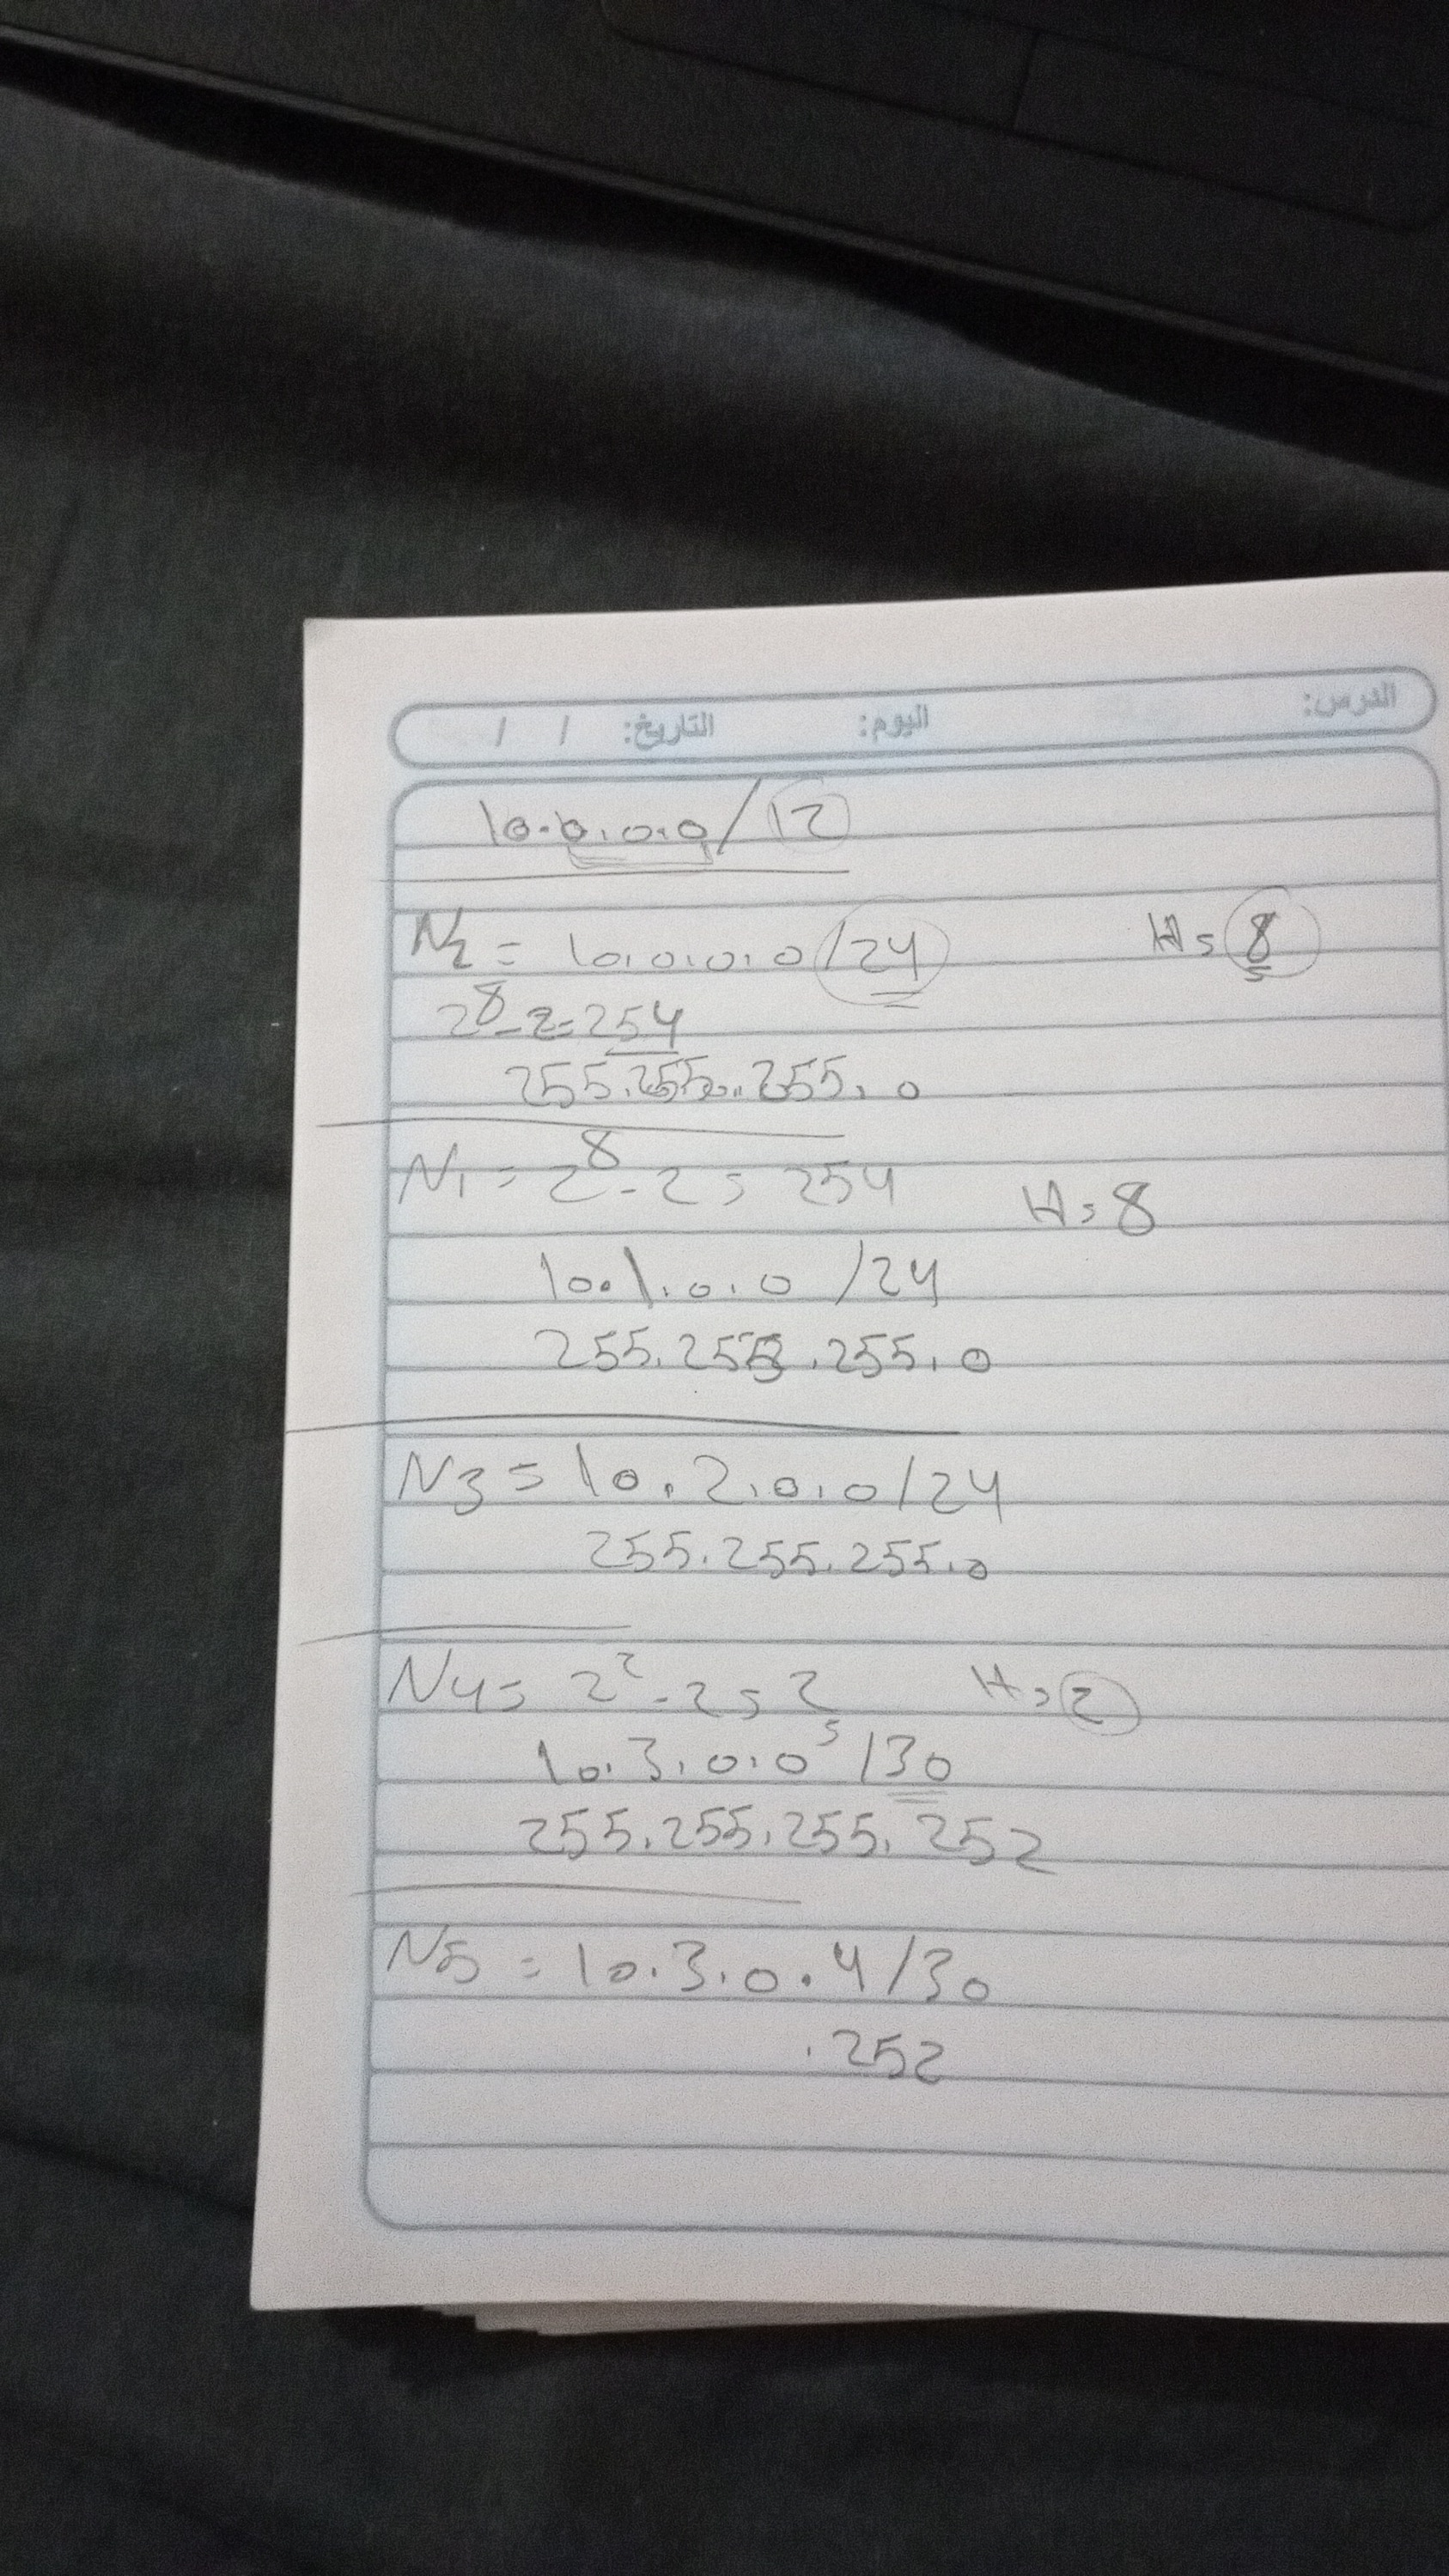 الدرس: اليوم: التاريخ: / /
10.0.0.0/12
N2 = 10.0.0.0/24 H=8
2^8-2=254
255.255.255.0
N1 = 2^8-2=254 H=8
10.1.0.0/24
255.255.255.0
N3=10.2.0.0/24
255.255.255.0
N4=2^2-2=2 H=2
10.3.0.0/30
255.255.255.252
N5=10.3.0.4/30
.252